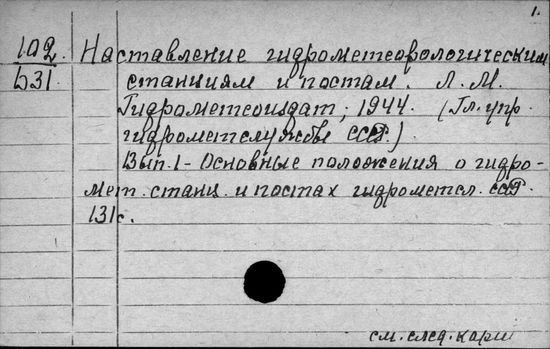 1.
102 Наставление гидрометеорологическим
Б31 станциям и постам. Л. М.
Гидрометеоиздат, 1944. (Гл. упр.
гидрометслужбы СССР.)
Вып. 1 - Основные положения о гидро-
мет. станц. и постах гидрометсл. СССР.
131 с.
см. след. карт